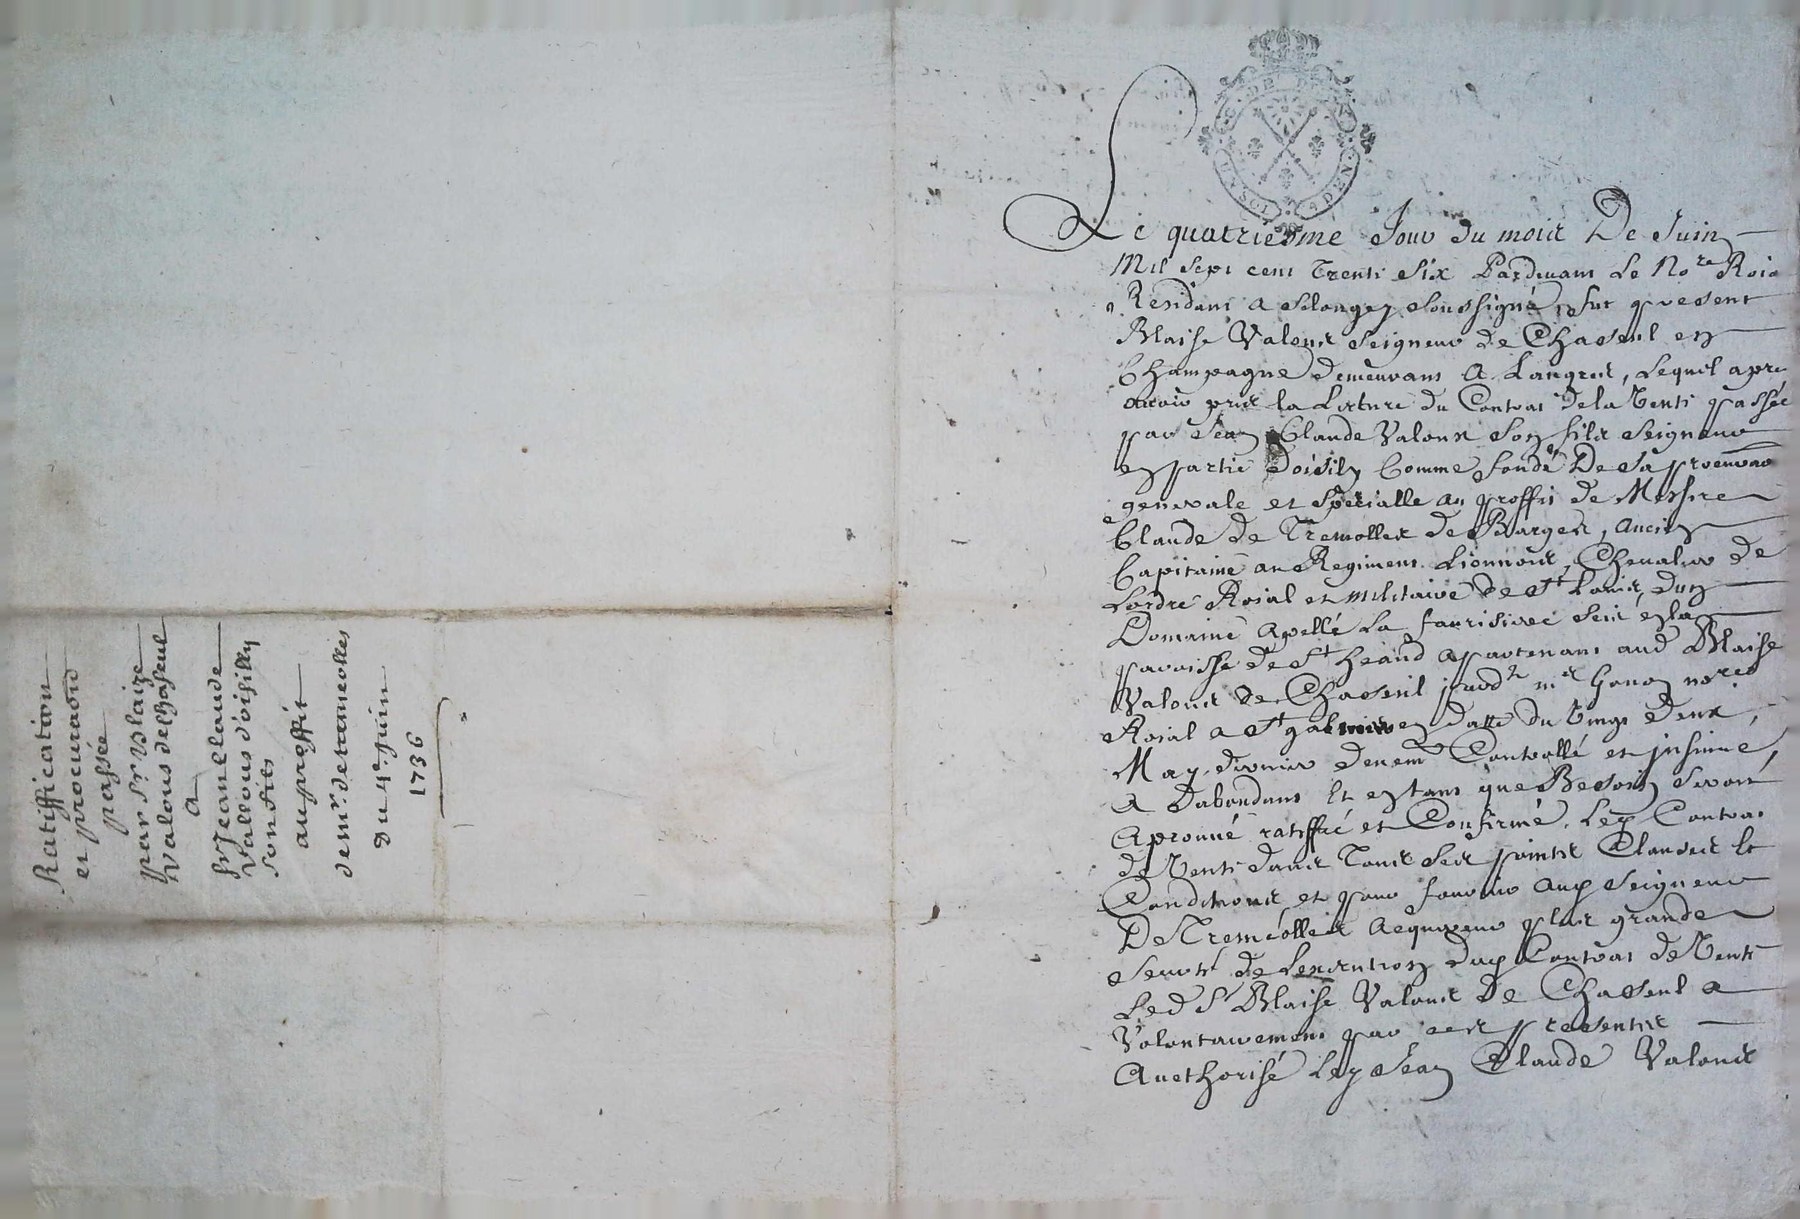 Ratiffication
et procuraõn
passée
par Sr. Blaize
Valous de chaseul
A
Sr. Jean Claude
Vallous d'oisilly
son fils
au proffit
de mr. de trameolles
Du 4e. juin
1736
Le quatriesme Jour du mois De Juin
Mil sept cent Trente Six Pardevant Le Nore Roial
Residant a Selongey soussigné, fut present
Blaise Valous Seigneur de Chaseul en
Champagne demeurant A Langres, Lequel apres
avoir pris la Lecture du Contrat de la Vente passée
par Jean Claude Valous Son fils Seigneur
en partie doisily Comme fondé De Sa procuraõ
generale et Specialle au proffit de Messire
Claude de Tremolles de Barges, ancien
Capitaine au Regiment Lionnois, Chevalier de
Lordre Roial et militaire de St Louis, dun
Domaine Apellé La faurisivre scis en la
paroisse de St heand apartenant aud Blaise
Valous de Chaseul pardt me Gonon nore
Roial a St galmier en datte du Vingt deux
May dernier deuem Controllé et insinué,
A Dabondant Et en tant que Besoin Seroit
Aprouué ratiffié et Confirmé, Led Contrat
de Vente dans Tous Ses points Clauses Et
Conditions et pour fournir aud Seigneur
De Tremeolles acquereur plus grande
Seureté de Lexecution dud Contrat de Vente
Led Sr Blaise Valous De Chaseul a
Volontairement par ces presentes
Aucthorisé Led Jean Claude Valous